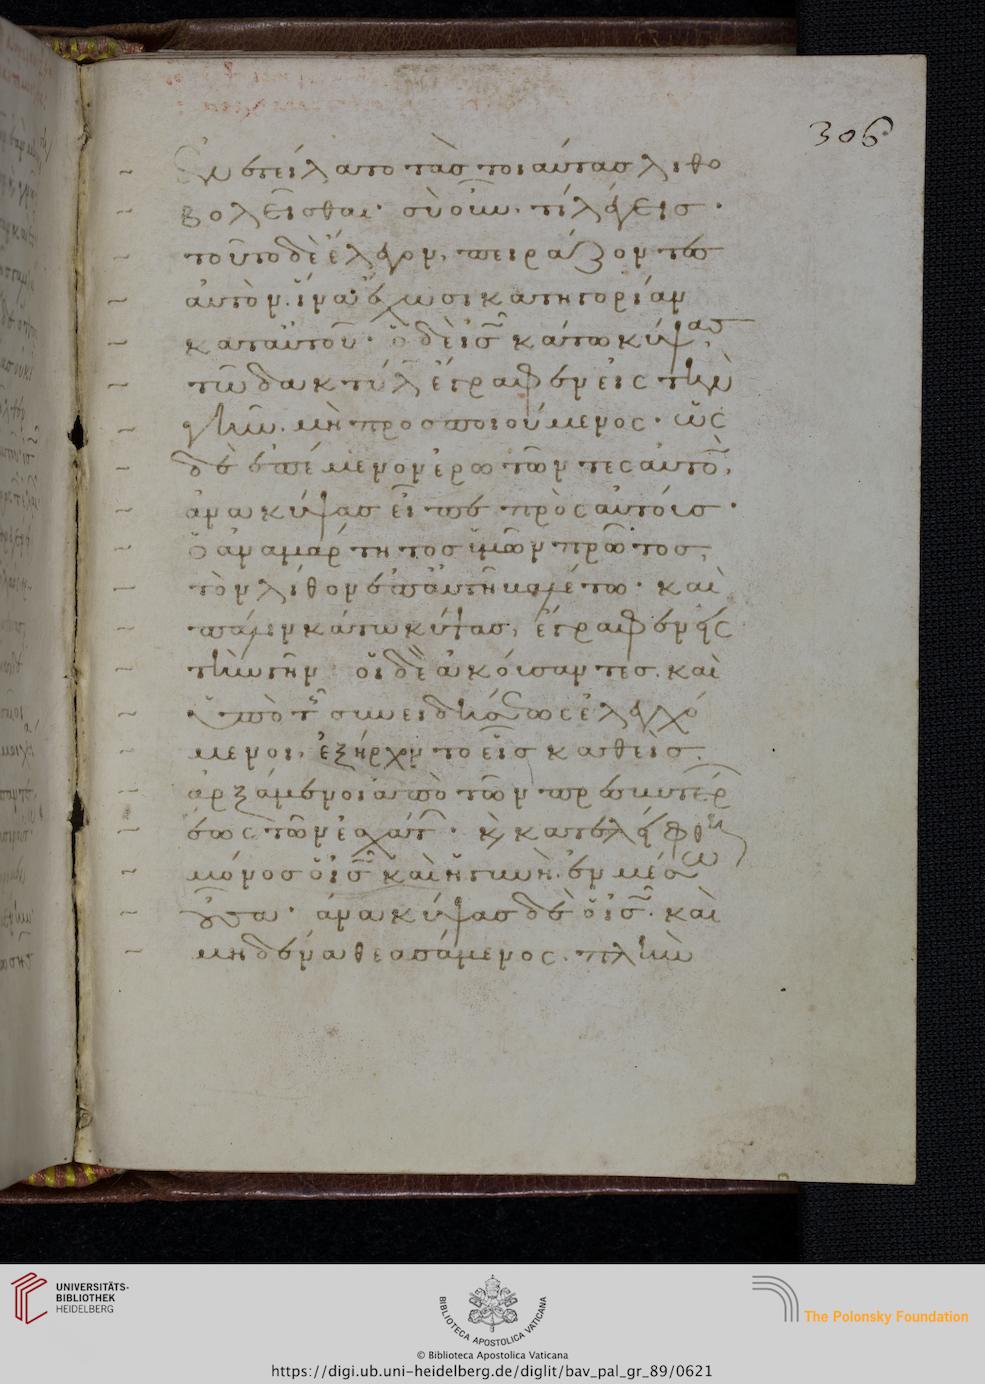 306
ἐνετείλατο τὰσ τοιαύτασ λιθο
βολεῖσθαι· σὺ οὖν, τί λέγεισ·
τοῦτο δὲ ἔλεγον, πειράζοντεσ
ἀυτὸν. ἵνα ἔχωσι κατηγορίαν
κατ' ἀυτοῦ· ὁ δὲ ἰσ κάτω κύψασ,
τῶ δακτύλ ἔγραφεν εἰς τὴν
γῆν. μὴ προσποιούμενος· ὡς
δὲ ἐπέμενον ἐρωτῶντες αὐτὸ,
ἀνακύψασ εἶπε πρὸς αὐτόυσ·
ὁ ἀναμάρτητοσ ὑμῶν πρῶτοσ,
τὸν λίθον ἐπ' ἀυτῆ βαλέτω· καὶ
πάλιν κάτω κύψασ, ἔγραφεν εἰς
τὴν γῆν οἱ δὲ ἀκόυσαντεσ. καὶ
ὑπὸ τ συνειδήσεως ἐλεγχό
μενοι, ἐξήρχοντο εἷσ καθεὶσ.
ἀρξάμενοι ἀπὸ τῶν πρεσβυτέρ
ἕως τῶν ἐσχάτ· κ κατελείφθη
μόνοσ ὁ ἰσ καὶ ἡ γυνὴ. ἐν μέσω
οὖσα· ἀνακύψασ δὲ ὁ ἰσ· καὶ
μηδένα θεασάμενος. πλὴν
UNIVERSITÄTS-
BIBLIOTHEK
HEIDELBERG
BIBLIOTECA APOSTOLICA VATICANA
The Polonsky Foundation
© Biblioteca Apostolica Vaticana
https://digi.ub.uni-heidelberg.de/diglit/bav_pal_gr_89/0621